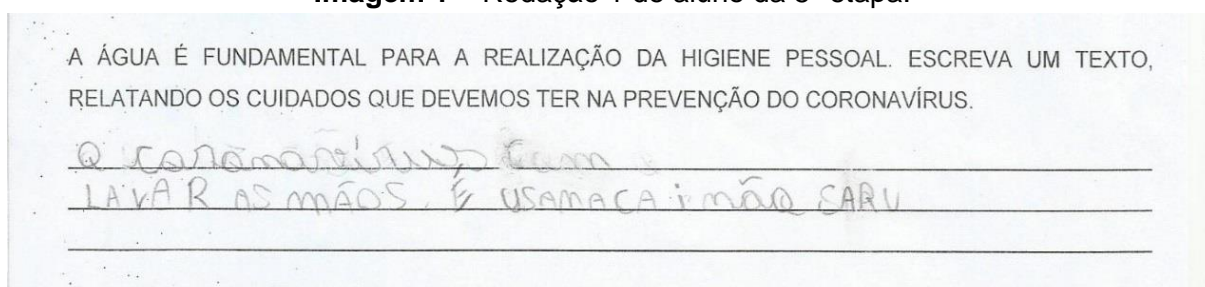 Imagem 1 – Redação 1 do aluno da 3ª etapa.
A ÁGUA É FUNDAMENTAL PARA A REALIZAÇÃO DA HIGIENE PESSOAL. ESCREVA UM TEXTO,
RELATANDO OS CUIDADOS QUE DEVEMOS TER NA PREVENÇÃO DO CORONAVÍRUS.
O coronavírus
LAVAR AS MÃOS. E USAMACA i não SARU